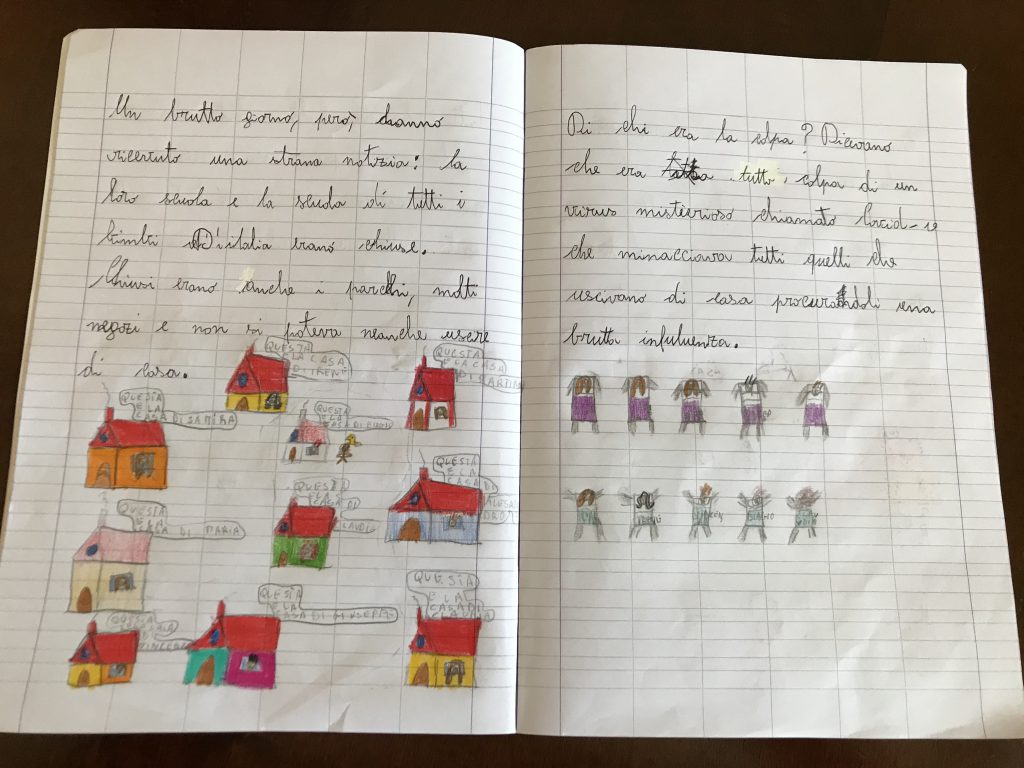 Un brutto giorno, però, hanno
ricevuto una strana notizia: la
loro scuola e la scuola di tutti i
bimbi D'italia erano chiuse.
Chiusi erano anche i parchi, molti
negozi e non si poteva neanche uscire
di casa.
QUESTA
E LA CASA
DI IRENE
QUESTA
E LA CASA
DI MARTINA
QUESTA
E LA
CASA DI SAMIRA
QUESTA
E LA
CASA DI
QUESTA
E LA
CASA DI
ALESSANDRO
QUESTA
E LA
CASA DI
CLAUDIO
QUESTA
E LA
CASA DI MARIA
QUESTA
E LA CASA
DI
VINCENZO
QUESTA
E LA
CASA DI GIUSEPPE
QUESTA
E LA
CASA DI
CLAUDIA
Di chi era la colpa? Dicevano
che era tutto colpa di un
virus misterioso chiamato Covid-19
che minacciava tutti quelli che
uscivano di casa procurandoli una
brutta infuluenza.